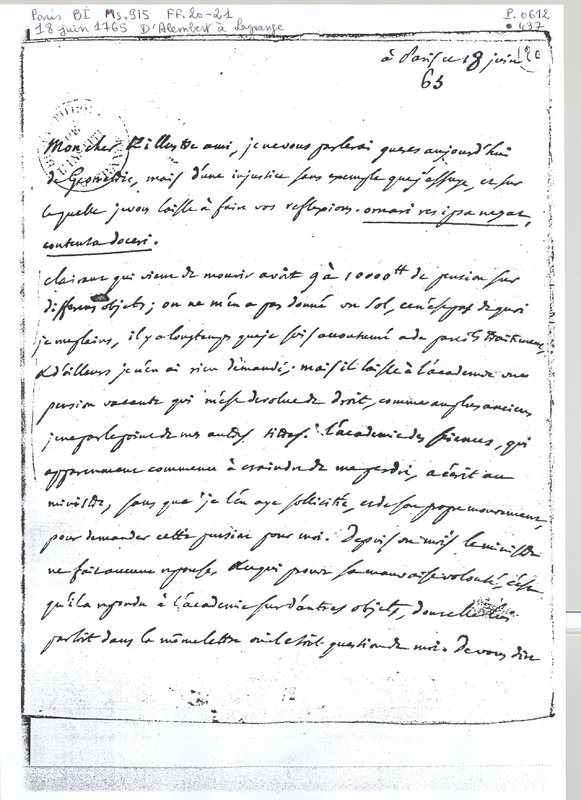 Paris BI Ms.915 FF.20-21
18 juin 1765 D'Alembert à Lagrange
P. 0612
• 437
à Paris ce 18 juin
65
Mon cher & illustre ami, je ne vous parlerai gueres aujourd'hui
de Géometrie, mais d'une injustice sans exemple que j'essuye, et sur
laquelle je vous laisse à faire vos reflexions. ornari res ipsa negat,
contenta doceri.
clairaut qui vient de mourir avoit 9 à 10000 tt de pension sur
differens objets; on ne m'en a pas donné un sol, ce n'est pas de quoi
je me plains, il y a longtemps que je suis accoutumé a de pareils traitemens,
& d'ailleurs je n'en ai rien demandé; mais il laisse à l'academie une
pension vacante qui m'est devolue de droit, comme au plus ancien
je ne parle point de mes autres titres. l'academie des sciences, qui
apparemment commence à craindre de me perdre, a écrit au
ministre, sans que je l'en aye sollicitée, et de son propre mouvement,
pour demander cette pension pour moi. Depuis un mois le ministre
ne fait aucune reponse, & ce qui prouve sa mauvaise volonté, c'est
qu'il a repondu à l'academie sur d'autres objets, dont elle lui
parloit dans la même lettre où il etoit question de moi. De vous dire